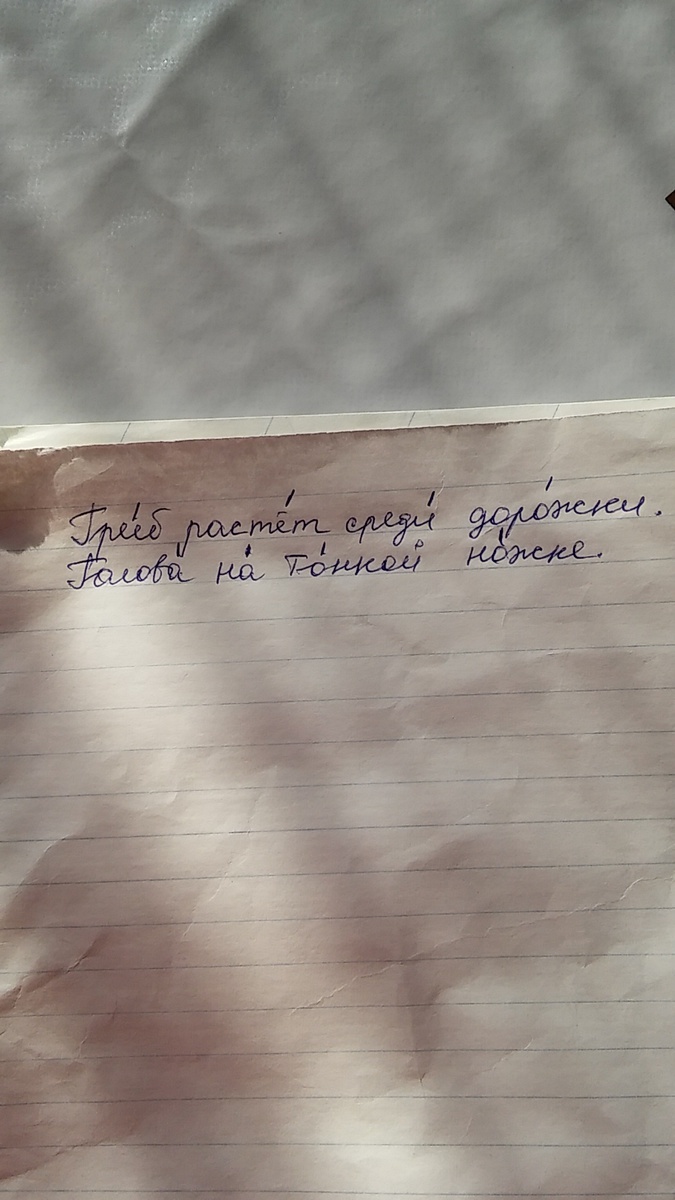 Гри́б расте́т среди́ доро́жки.
Голова́ на́ то́нкой но́жке.